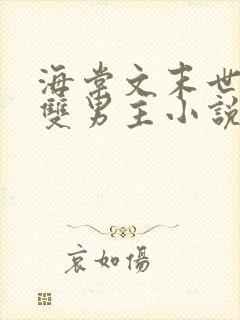 海棠文末世
雙男主小說
哀如傷